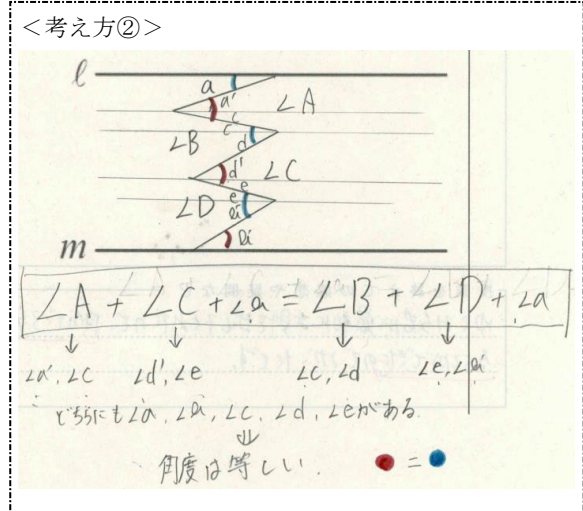 <考え方②>
ℓ
a
a'
∠A
c
c
∠B
d
d'
∠C
e
∠D
e
m
∠A + ∠C + ∠a = ∠B + ∠D + ∠a
↓ ↓ ↓ ↓
∠a', ∠c ∠d', ∠e ∠c, ∠d ∠e,
どちらにも∠a, ∠c, ∠d, ∠eがある
⇓
角度は等しい.
=